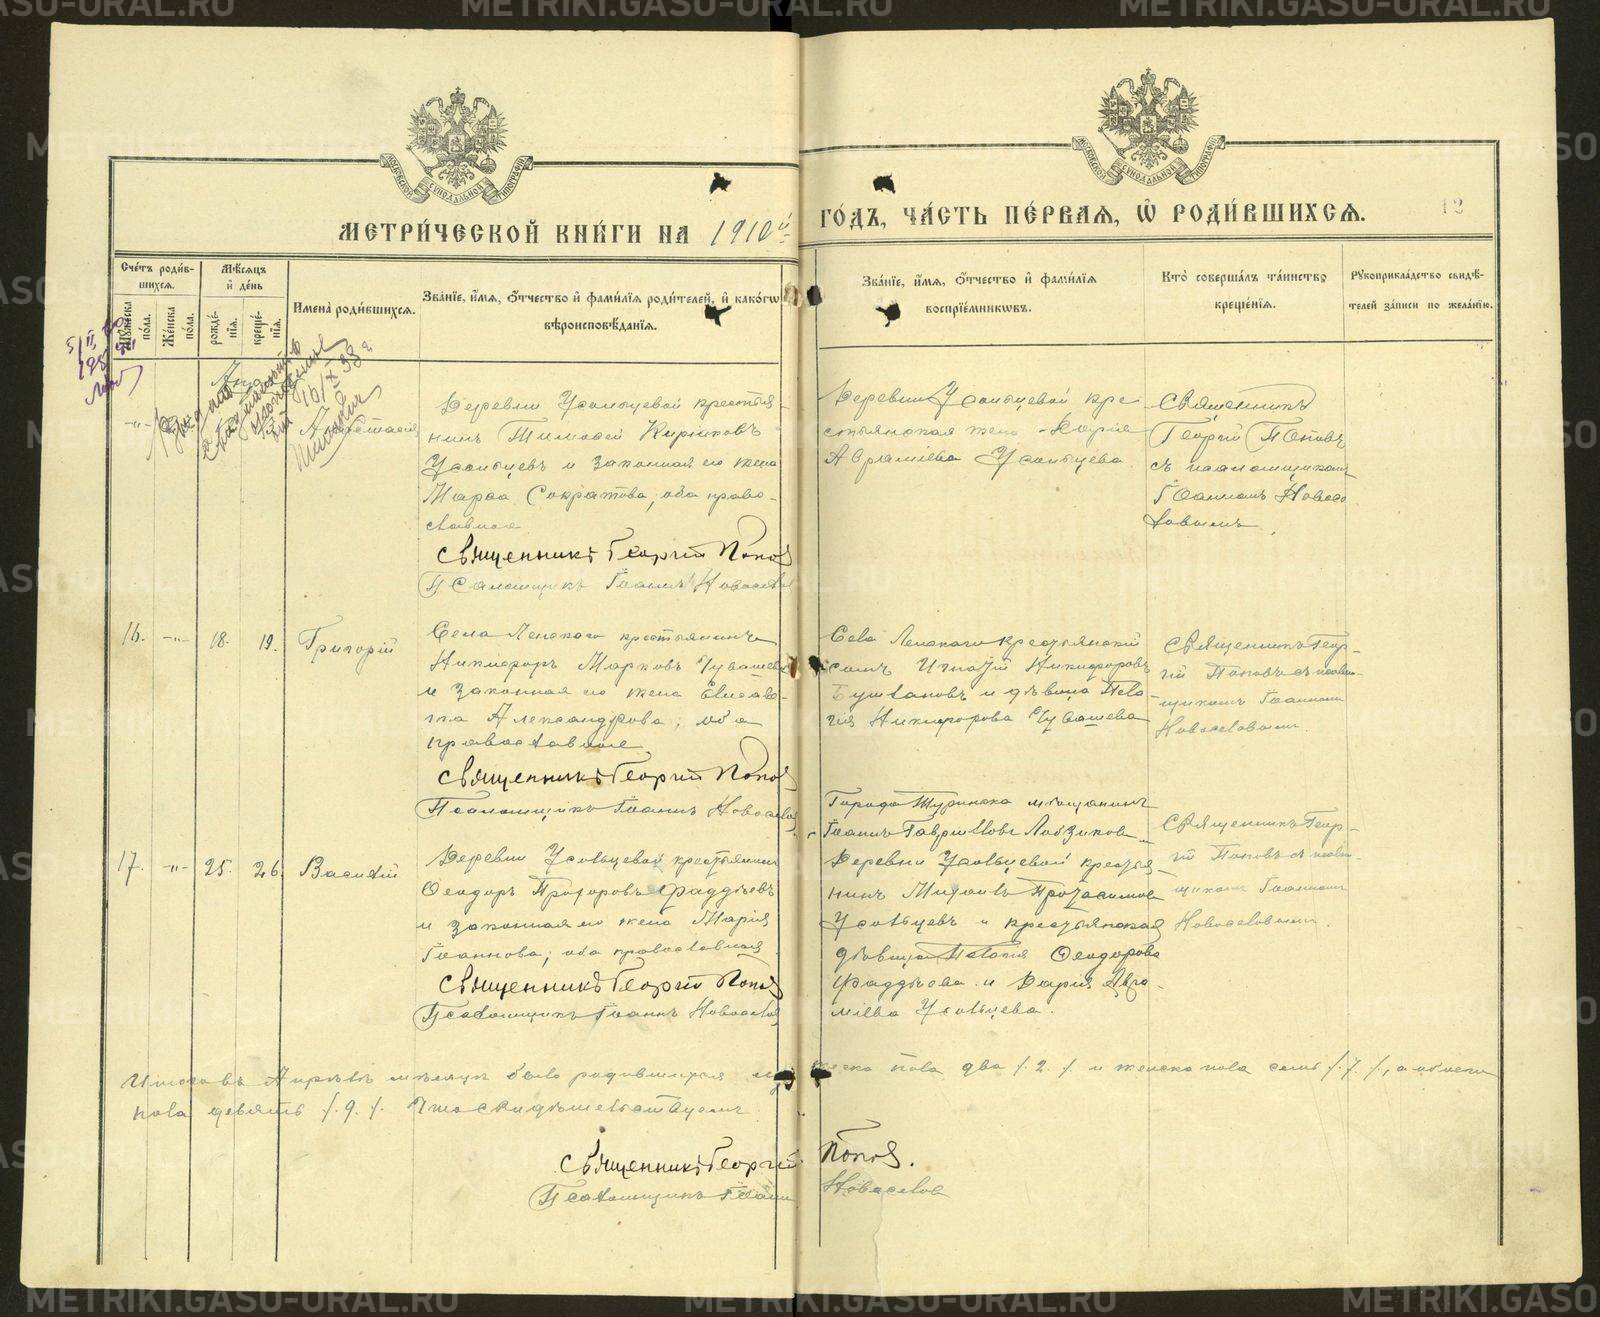 МЕТРИ́ЧЕСКОЙ КНИ́ГИ НА 1910й
ГО́ДЪ, ЧА́СТЬ ПЕ́РВАЯ, Ѡ РОДИ́ВШИХСЯ.
12
Сче́тъ роди́в-
шихся.
Му́жеска по́ла.
Же́нска по́ла.
Мѣ́сяцъ
и҆ де́нь
рожде́-
нїя.
креще́-
нїя.
И҆мена̀ роди́вшихся.
Зва́нїе, и҆́мя, ѻ҆́тчество и҆ фами́лїя роди́телей, и҆ како́гѡ
вѣроисповѣ́данїя.
Зва́нїе, и҆́мя, ѻ҆́тчество и҆ фами́лїя
воспрїе́мникѡвъ.
Кто̀ соверша́лъ та́инство
креще́нїя.
Рꙋкоприкла́дство свидѣ́-
телей за́писи по жела́нїю.
Деревни Усольцевой крестья-
нинъ Тимофей Кириковъ
Усольцевъ и законная его жена
Марфа Сократова, оба право-
славные
Священникъ Георгій Поповъ
Псаломщикъ Іоаннъ Новоселовъ
Деревни Усольцевой кре
стьянская жена Дарія
Аврамиева Усольцева
Священникъ
Георгій Поповъ
съ псаломщикомъ
Іоанномъ Новосе
ловымъ
16. -"- 18. 19. Григорій
Села Ленскаго крестьянинъ
Никифоръ Марковъ Чувашевъ
и законная его жена Елисаве-
та Александрова, оба
православные
Священникъ Георгій Поповъ
Псаломщикъ Іоаннъ Новоселовъ
Села Ленскаго крестьянскій
сынъ Игнатій Никифоровъ
и дѣвица Пела-
гія Никифорова Чувашева
Священникъ Геор-
гій Поповъ съ псалом-
щикомъ Іоанномъ
Новоселовымъ.
17. -"- 25. 26. Василій
Деревни Усольцевой крестьянинъ
Ѳеодоръ Прохоровъ Фаддѣевъ
и законная его жена Марія
Іоаннова; оба православные
Священникъ Георгій Поповъ
Псаломщикъ Іоаннъ Новоселовъ
Города Туринска мѣщанинъ
Іоаннъ Гавріиловъ
Деревни Усольцевой крестья-
нинъ
Усольцевъ и крестьянская
дѣвица Пелагія Ѳеодорова
Фаддѣева и Дарія Авра-
міева Усольцева.
Священникъ Геор-
гій Поповъ съ псалом-
щикомъ Іоанномъ
Новоселовымъ.
Итого въ Апрѣлѣ мѣсяцѣ было родившихся мужеска пола два /. 2 /. и женска пола семь /. 7 /., а обоего
пола девять /. 9. /. Что свидѣтельствуемъ
Священникъ Георгій Поповъ.
Псаломщикъ Іоаннъ Новоселовъ
METRIKI.GASO-URAL.RU